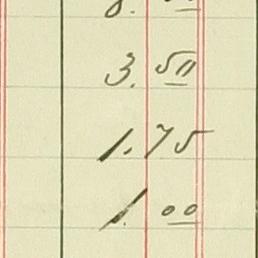 3.50
1.75
1.00